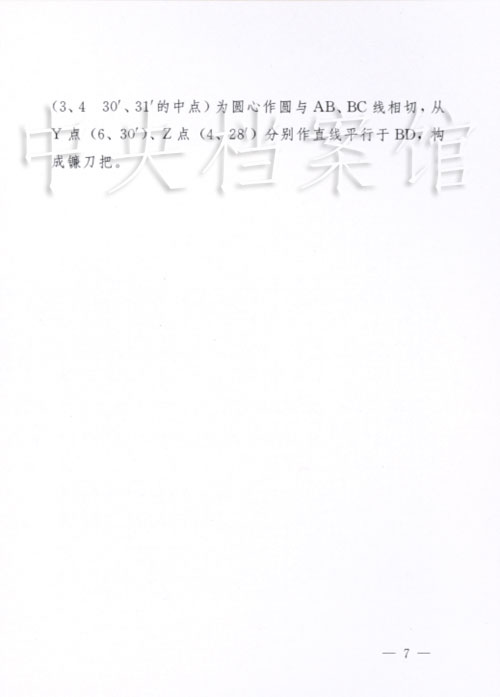 （3、4　30′、31′的中点）为圆心作圆与AB、BC线相切，从
Y点（6、30′）、Z点（4、28′）分别作直线平行于BD，构
成镰刀把。
中央档案馆
— 7 —